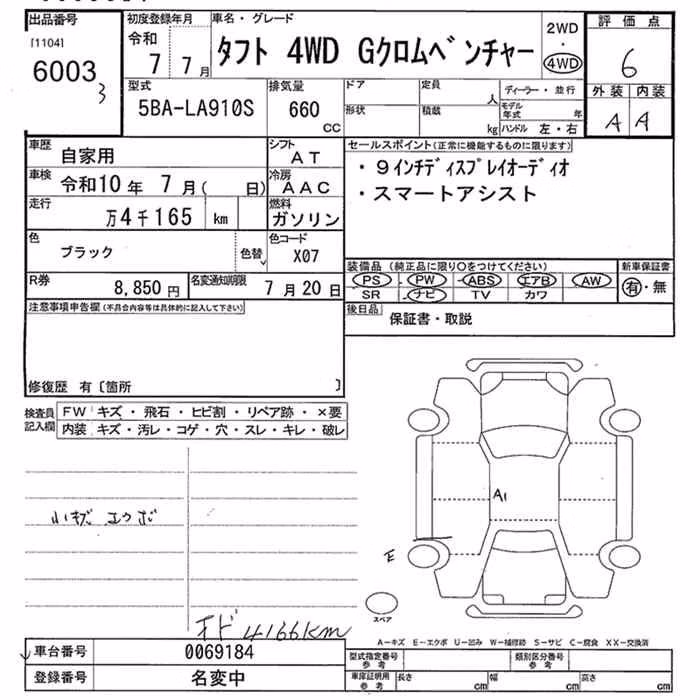 出品番号 初度登録年月 車名・グレード 2WD 評価点
[1104] 令和 ・
6003 7 7月 タフト 4WD Gクロムベンチャー 4WD 6
3 型式 排気量 ドア 定員 ディーラー・並行 外装 内装
5BA-LA910S 660 人 モデル年式 年 A A
cc 形状 積載 kg ハンドル 左・右
車歴 自家用 シフト AT セールスポイント(正常に機能するものに限ります)
車検 令和10年 7月( 日) 冷房 AAC ・9インチディスプレイオーディオ
走行 万4千165 km 燃料 ガソリン ・スマートアシスト
色 ブラック 色替 色コード X07
装備品(純正品に限り○をつけてください) 新車保証書
R券 8,850円 名変通知期限 7月20日 PS PW ABS エアB AW 有・無
SR ナビ TV カワ
注意事項申告欄(不具合内容等は具体的に記入して下さい) 後日品 保証書・取説
修復歴 有〔箇所 〕
検査員記入欄 FW キズ・飛石・ヒビ割・リペア跡・×要
内装 キズ・汚レ・コゲ・穴・スレ・キレ・破レ
A1
小キズ エクボ
E
スペア
オド 4166km
A-キズ E-エクボ U-凹み W-補修跡 S-サビ C-腐食 XX-交換済
車台番号 0069184 型式指定番号参考 類別区分番号参考
登録番号 名変中 車庫証明用参考 長さ cm 幅 cm 高さ cm